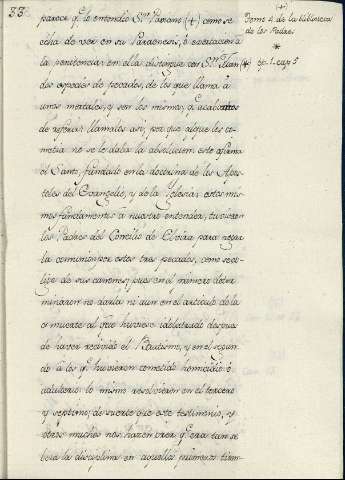 33.
parece q.e lo entendio S.n Paciano (+) como se
echa de ver en su Paraenesis, ô exortacion â
la penitencia; en ella distingue con S.n Juan (*)
dos especies de pecados, de los que llama â
unos mortales, y son los mismos, q.e acabamos
de referir: llamalos asi, por que al que los co-
metia no se le daba la absolucion: esto afirma
el Santo, fundado en la doctrina de los Apos-
toles del Evangelio, y de la Yglesia: estos mis-
mos fundamentos â nuestro entender, tuvieron
los Padres del Concilio de Elvira para negar
la comunion por estos tres pecados, como se co-
lije de sus canones; pues en el primero deter-
minaron no darla ni aun en el articulo de la
muerte al que huviese idolatrado despues
de haver recivido el Bautismo, y en el segun-
do â los q.e huvieron cometido homicidio ô
adulterio: lo mismo resolvieron en el tercero
y septimo; de suerte que este testimonio, y
otros muchos nos hacen creer q.e era tan se-
vera la disciplina en aquellos primeros tiem-
(+)
Tomo 4. de la biblioteca
de los Padres.
*
Ep. 1. cap. 5